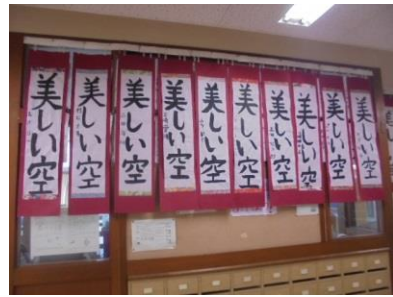 美しい空
美しい空
美しい空
美しい空
美しい空
美しい空
美しい空
美しい空
美しい空
美しい空